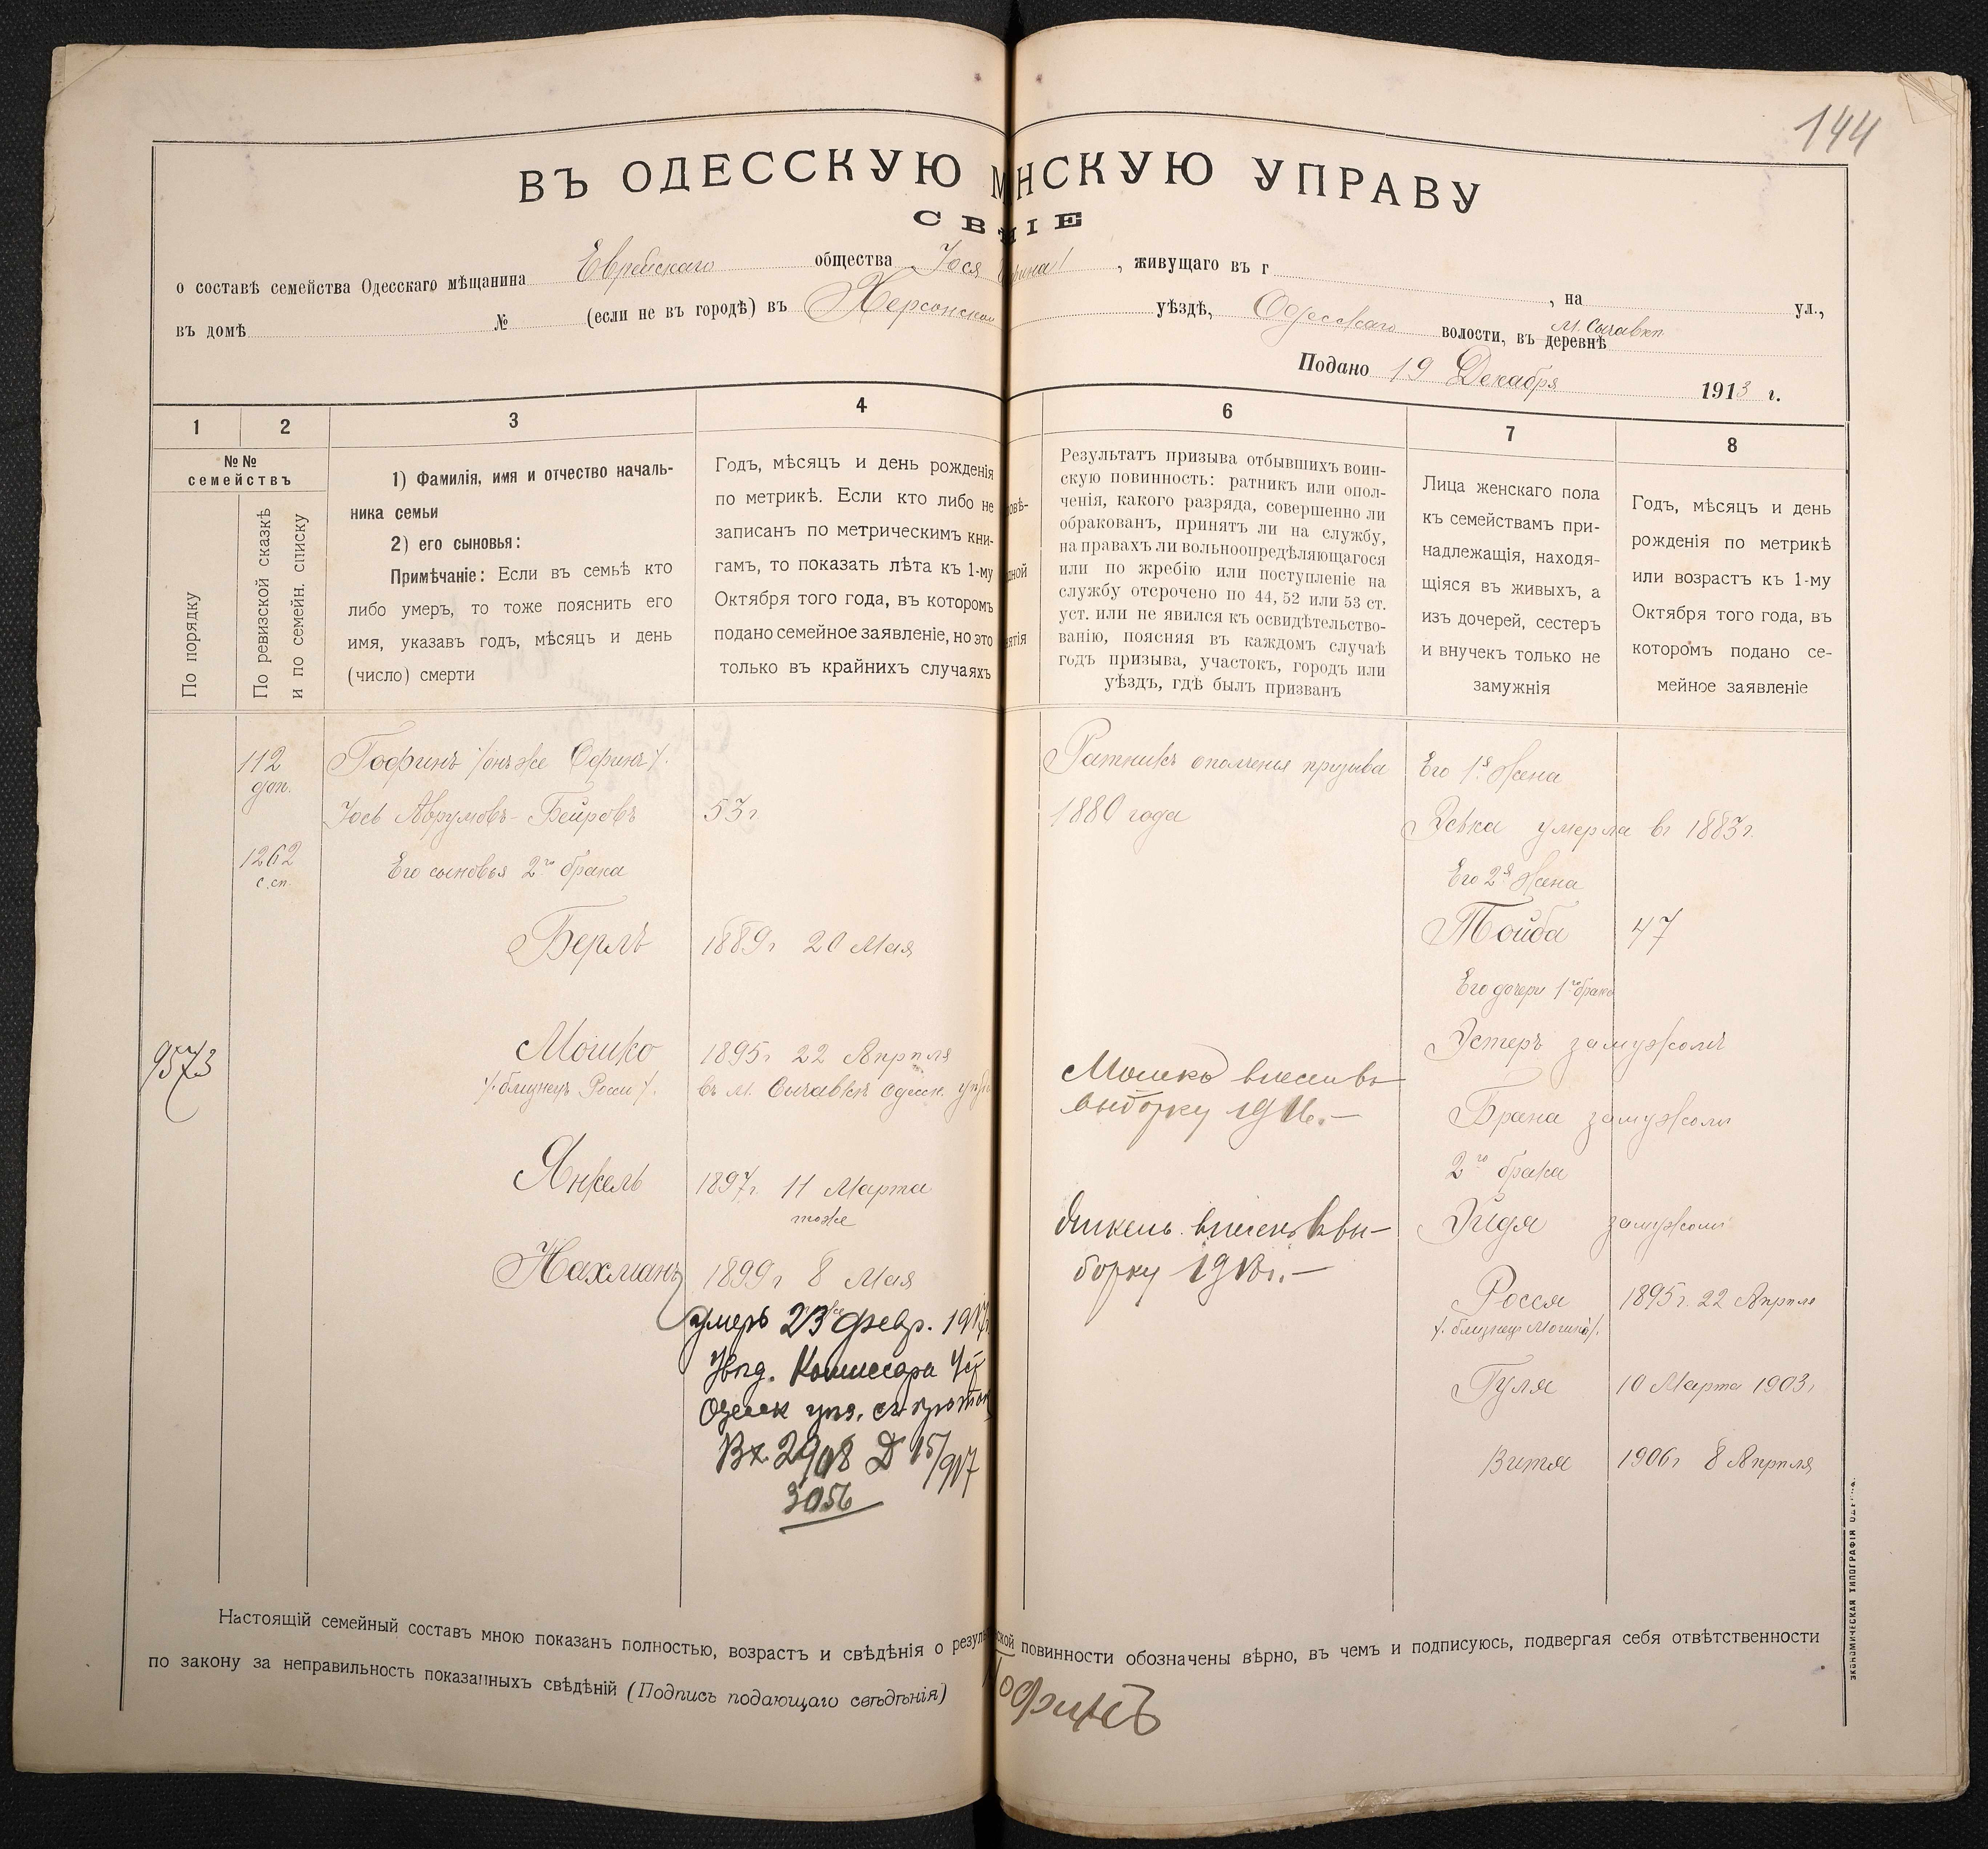 144
ВЪ ОДЕССКУЮ М НСКУЮ УПРАВУ
СВ НІЕ
о составѣ семейства Одесскаго мѣщанина Еврейскаго общества Іося , живущаго въ г , на ул.,
въ домѣ № (если не въ городѣ) въ Херсонской уѣздѣ, Одесскаго волости, въ деревнѣ м. Сычавкѣ
Подано 19 Декабря 1913 г.
1 2 3 4 6 7 8
№№
семействъ
По порядку
По ревизской сказкѣ
и по семейн. списку
1) Фамилія, имя и отчество началь-
ника семьи
2) его сыновья:
Примѣчаніе: Если въ семьѣ кто
либо умеръ, то тоже пояснить его
имя, указавъ годъ, мѣсяцъ и день
(число) смерти
Годъ, мѣсяцъ и день рожденія
по метрикѣ. Если кто либо не
записанъ по метрическимъ кни-
гамъ, то показать лѣта къ 1-му
Октября того года, въ которомъ
подано семейное заявленіе, но это
только въ крайнихъ случаяхъ
Результатъ призыва отбывшихъ воин-
скую повинность: ратникъ или опол-
ченія, какого разряда, совершенно ли
обракованъ, принятъ ли на службу,
на правахъ ли вольноопредѣляющагося
или по жребію или поступленіе на
службу отсрочено по 44, 52 или 53 ст.
уст. или не явился къ освидѣтельство-
ванію, поясняя въ каждомъ случаѣ
годъ призыва, участокъ, городъ или
уѣздъ, гдѣ былъ призванъ
Лица женскаго пола
къ семействамъ при-
надлежащія, находя-
щіяся въ живыхъ, а
изъ дочерей, сестеръ
и внучекъ только не
замужнія
Годъ, мѣсяцъ и день
рожденія по метрикѣ
или возрастъ къ 1-му
Октября того года, въ
которомъ подано се-
мейное заявленіе
9573
112
доп.
1262
с.сп.
Гофинъ /онъ же Офинъ/.
Іось Аврумовъ-Бейровъ 53 г
Его сыновья 2го брака
Берль 1889 г 20 Мая
Мошко 1895 г 22 Апрѣля
/.близнецъ Росси/. въ м. Сычавкѣ Одесск.
Янкель 1897 г. 11 Марта
тоже
Нахманъ 1899 г 8 Мая
умеръ 23 февр. 1917
Увѣд. Комиссара
Одесск уѣз.
Вх. 2908 Д 15/917
3056
Ратникъ ополченія призыва
1880 года
Мошко внесенъ въ
выборку 1916.-
Янкель внесенъ въ вы-
борку 1918г.-
Его 1я Жена
Эська умерла въ 1883 г.
Его 2я Жена
Тойба 47
Его дочери 1го брака
Эстеръ замужемъ
Брана замужемъ
2го брака
Эйдя замужемъ
Росся 1895 г. 22 Апрѣля
/.близнецъ Мошки/.
Гуля 10 Марта 1903 г
Витя 1906 г 8 Апрѣля
Настоящій семейный составъ мною показанъ полностью, возрастъ и свѣдѣнія о резуль ской повинности обозначены вѣрно, въ чемъ и подписуюсь, подвергая себя отвѣтственности
по закону за неправильность показанныхъ свѣдѣній (Подпись подающаго свѣдѣнія) Гофинъ
ЭКОНОМИЧЕСКАЯ ТИПОГРАФІЯ